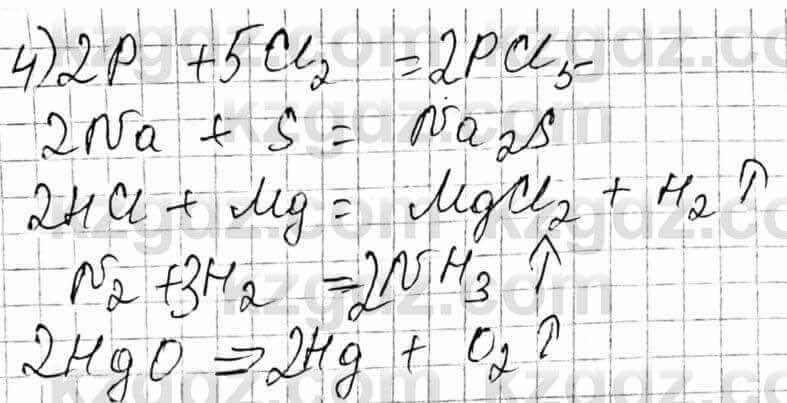 4) 2P + 5Cl₂ = 2PCl₅
2Na + S = Na₂S
2HCl + Mg = MgCl₂ + H₂ ↑
N₂ + 3H₂ = 2NH₃ ↑
2HgO => 2Hg + O₂ ↑
kzgdz.com